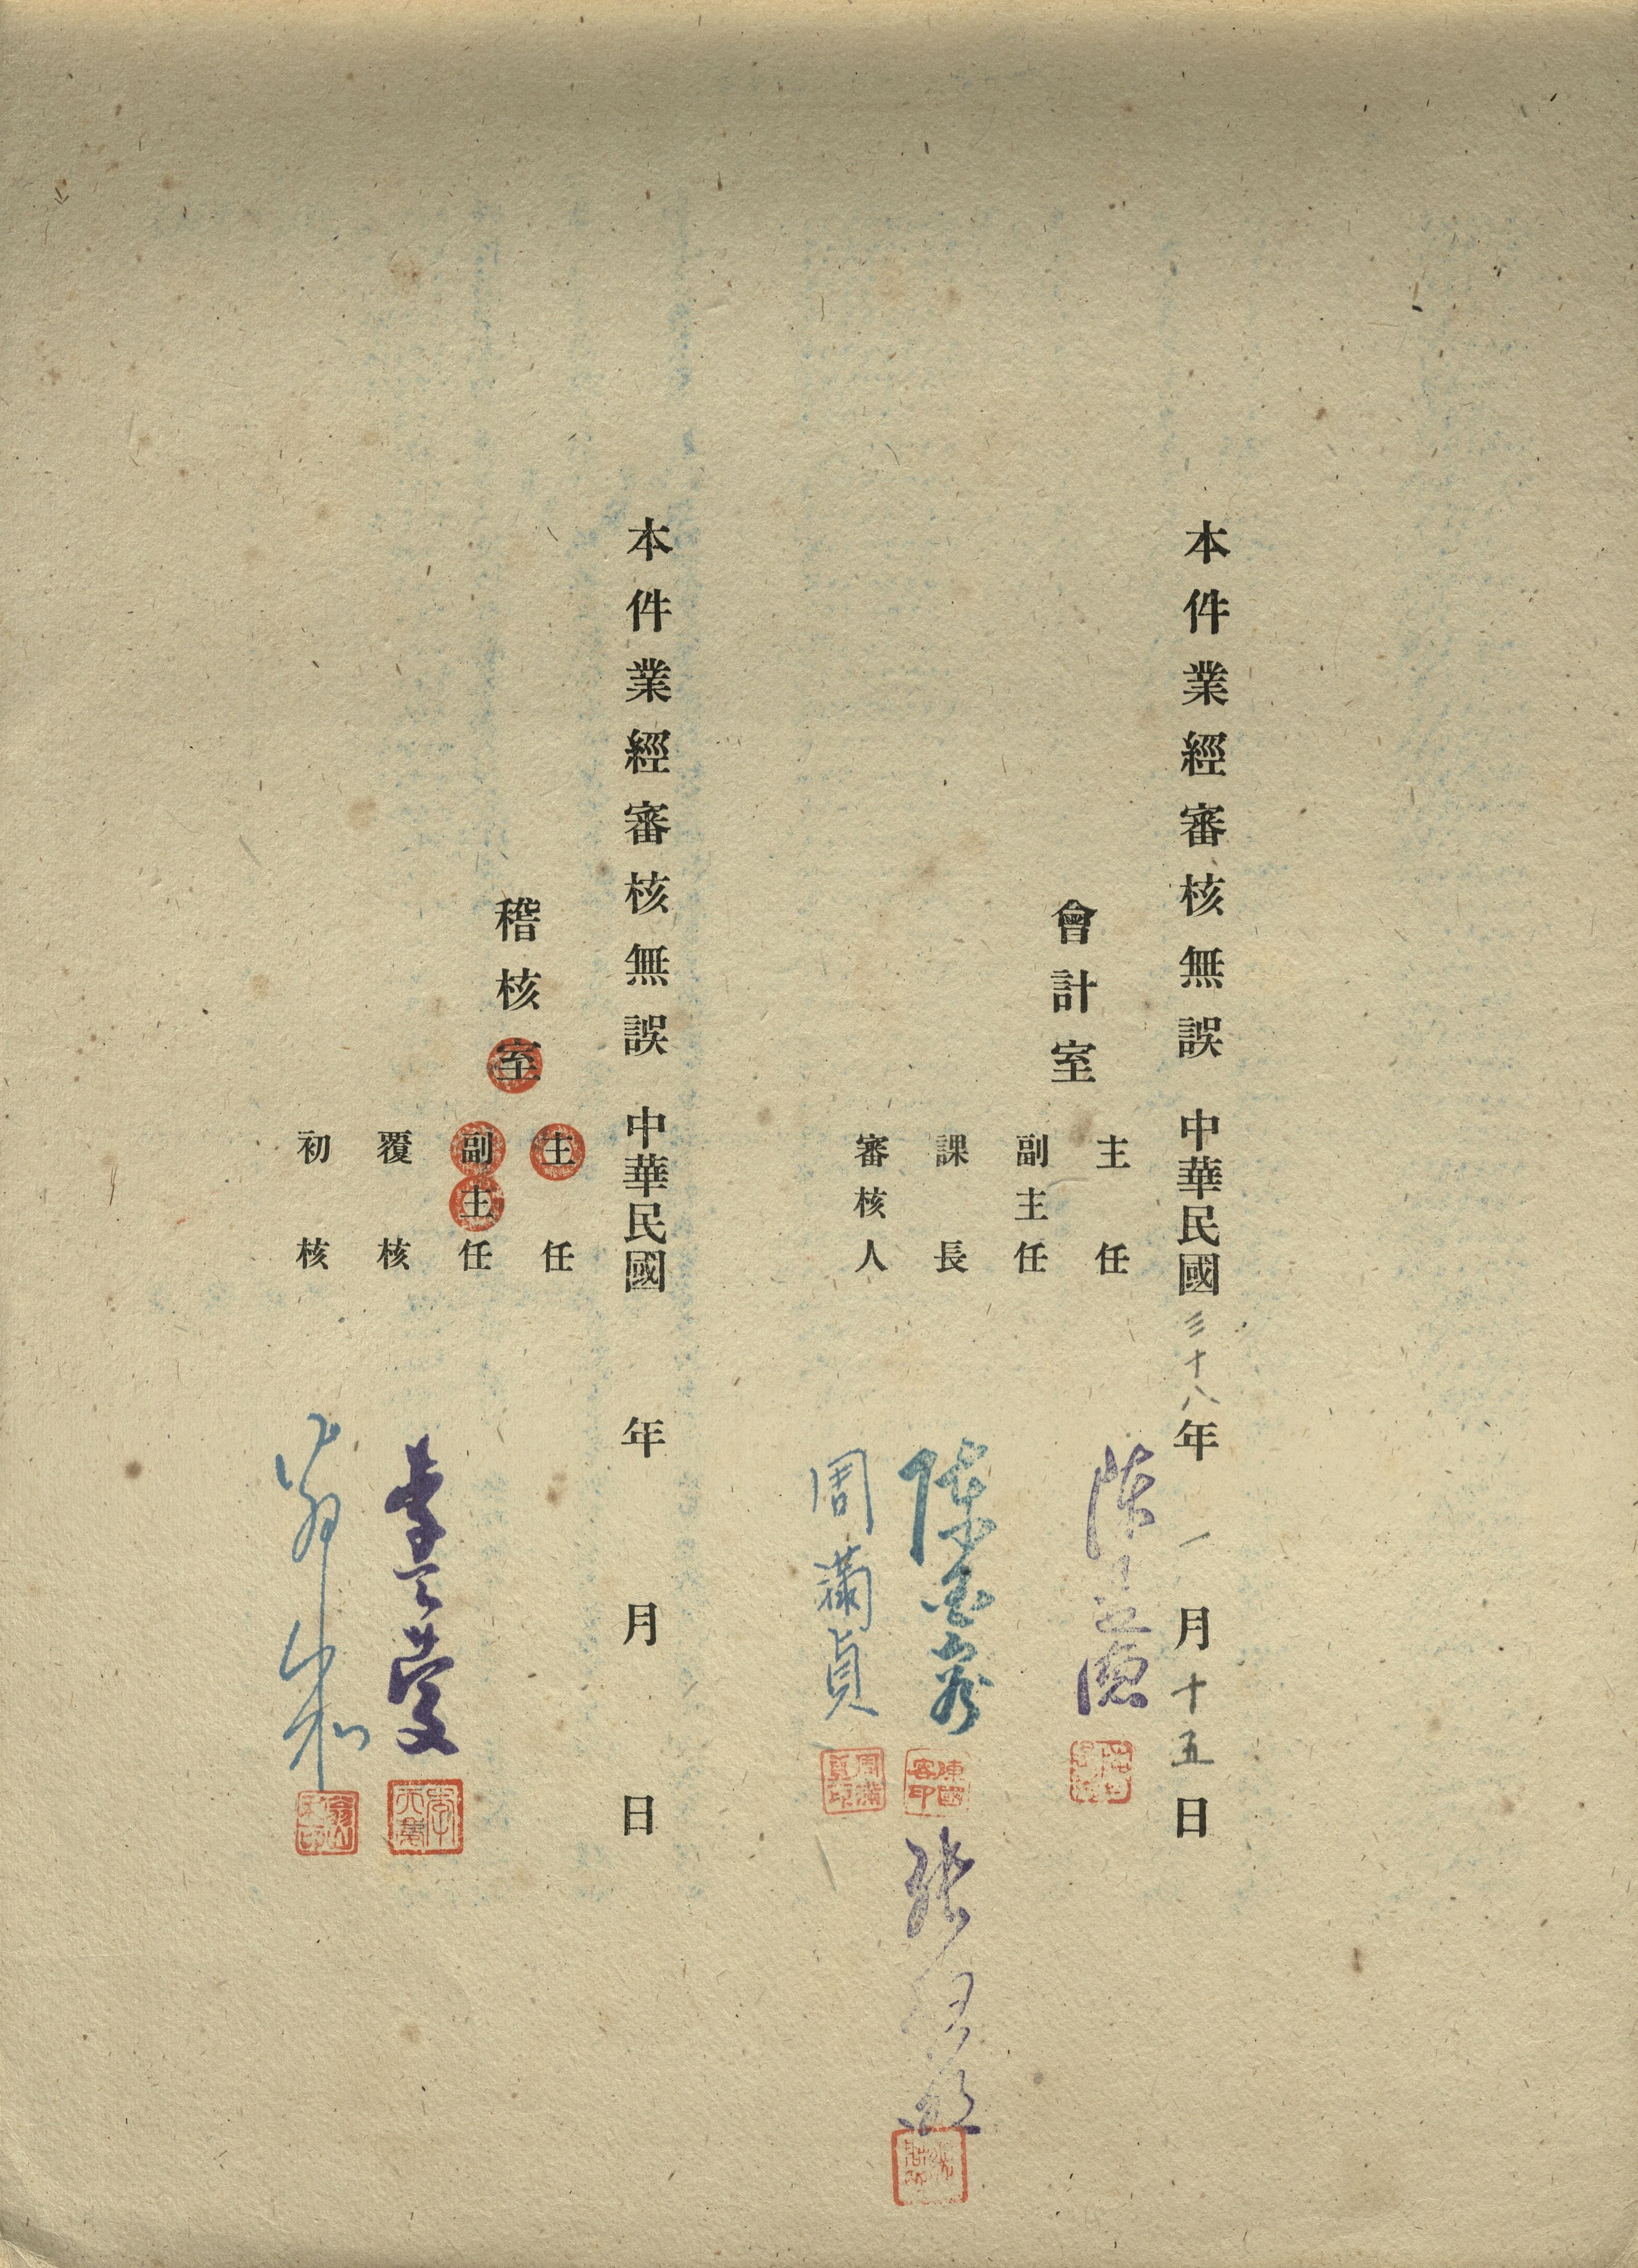 本件業經審核無誤 中華民國三十八年一月十五日
會計室
主任 陳
副主任
課長 陳國容
陳國容印
張
審核人 周蘭貞
本件業經審核無誤 中華民國 年 月 日
稽核室
主任
副主任
覆核 李
初核